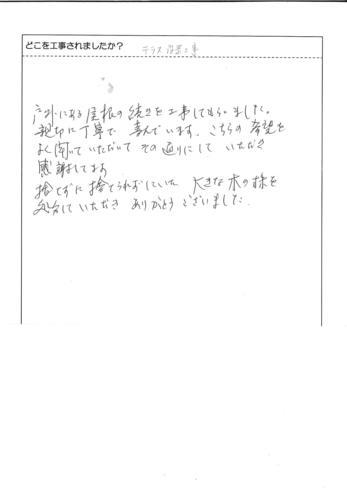 どこを工事されましたか？ テラス設置工事
戸外にある屋根の続きを工事してもらいました。
親切に丁寧で 喜んでいます。こちらの希望を
よく聞いていただいて その通りにして いただき
感謝してます
捨てずに捨てられずにいた 大きな木の株を
処分していただき ありがとう ございました